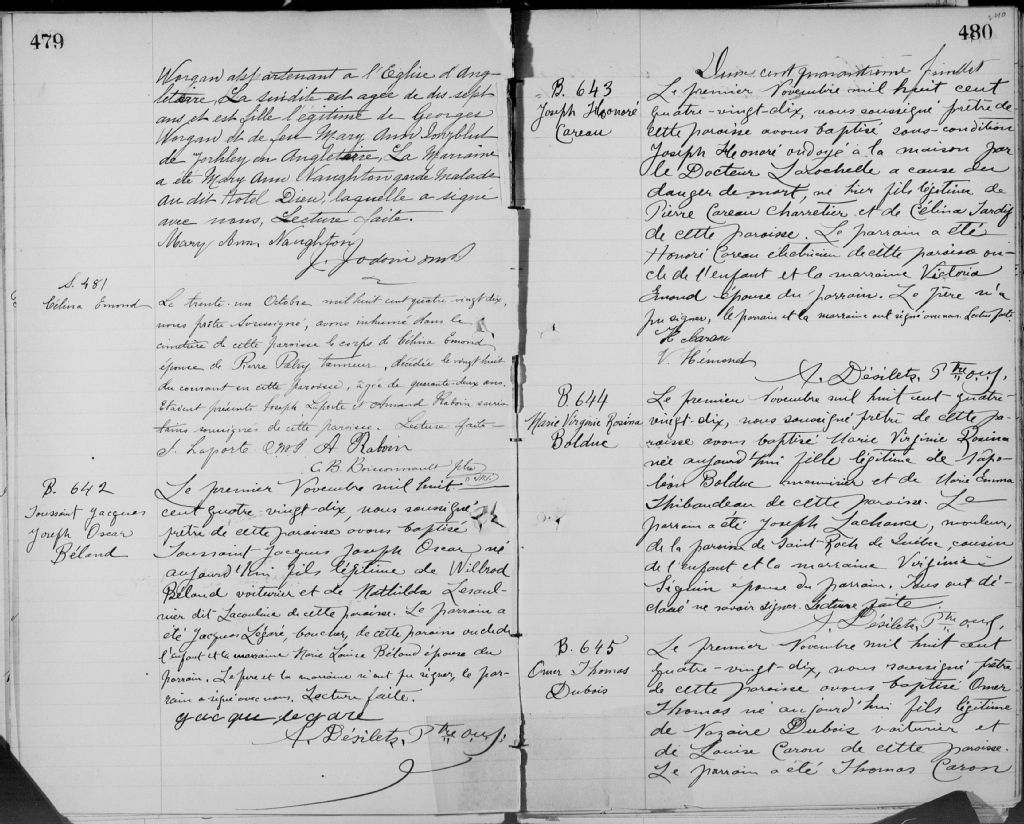 479
Morgan appartenant a l'Eglise d'Ang-
leterre, La susdite est agée de dix sept
ans, et est fille légitime de Georges
Morgan et de feu Mary Ann
de en Angleterre, La Marraine
a été Mary Ann Naughton garde malade
au dit Hotel Dieu, laquelle a signé
avec nous, Lecture faite.
Mary Ann Naughton
J. Jodoin
S. 481
Célina Emond
Le trente-un Octobre mil huit cent quatre vingt dix,
nous prêtre soussigné, avons inhumé dans le
cimetière de cette paroisse le corps de Célina Emond
épouse de Pierre Patry tanneur, décédée le vingt huit
du courant en cette paroisse, âgée de quarante-deux ans.
Etaient présents Joseph Laporte et Armand Raboin sacris-
tains soussignés de cette paroisse. Lecture faite
J. Laporte A Raboin
C. B. Brissonnault ptre
B. 642
Toussaint Jacques
Joseph Oscar
Béland
Le premier Novembre mil huit
cent quatre vingt-dix, nous soussigné
prêtre de cette paroisse avons baptisé
Toussaint Jacques Joseph Oscar né
aujourd'hui fils légitime de Wilbrod
Béland voiturier et de Mathilda Lesaul-
nier dit Lacouline de cette paroisse. Le parrain a
été Jacques Légaré, boucher, de cette paroisse oncle de
l'enfant et la marraine Marie Louise Béland épouse du
parrain. Le père et la marraine n'ont pu signer, le par-
rain a signé avec nous. Lecture faite.
jacque legare
A. Désilets, Ptre
480
Deux cent quarantième feuillet
B. 643
Joseph Honoré
Careau
Le premier Novembre mil huit cent
quatre-vingt-dix, nous soussigné prêtre de
cette paroisse avons baptisé sous-condition
Joseph Honoré ondoyé à la maison par
le Docteur LaRochelle a cause du
danger de mort, né hier fils légitime de
Pierre Careau charretier et de Célina Tardif
de cette paroisse. Le parrain a été
Honoré Careau de cette paroisse on-
cle de l'enfant et la marraine Victoria
Emond épouse du parrain. Le père n'a
pu signer, le parrain et la marraine ont signé avec nous. Lecture faite
H
V. Hémond
A. Désilets, Ptre
B. 644
Marie Virginie Rosina
Bolduc
Le premier Novembre mil huit cent quatre-
vingt-dix, nous soussigné prêtre de cette pa-
roisse avons baptisé Marie Virginie Rosina
née aujourd'hui fille légitime de Napo-
léon Bolduc menuisier et de Marie Emma
Thibaudeau de cette paroisse. Le
parrain a été Joseph Lachance, mouleur,
de la paroisse de Saint-Roch de Québec, cousin
de l'enfant et la marraine Virginie
Séguin épouse du parrain. Tous ont dé-
claré ne savoir signer. Lecture faite.
A. Désilets, Ptre
B. 645
Omer Thomas
Dubois
Le premier Novembre mil huit cent
quatre-vingt-dix, nous soussigné prêtre
de cette paroisse avons baptisé Omer
Thomas né aujourd'hui fils légitime
de Nazaire Dubois voiturier et
de Louise Caron de cette paroisse.
Le parrain a été Thomas Caron